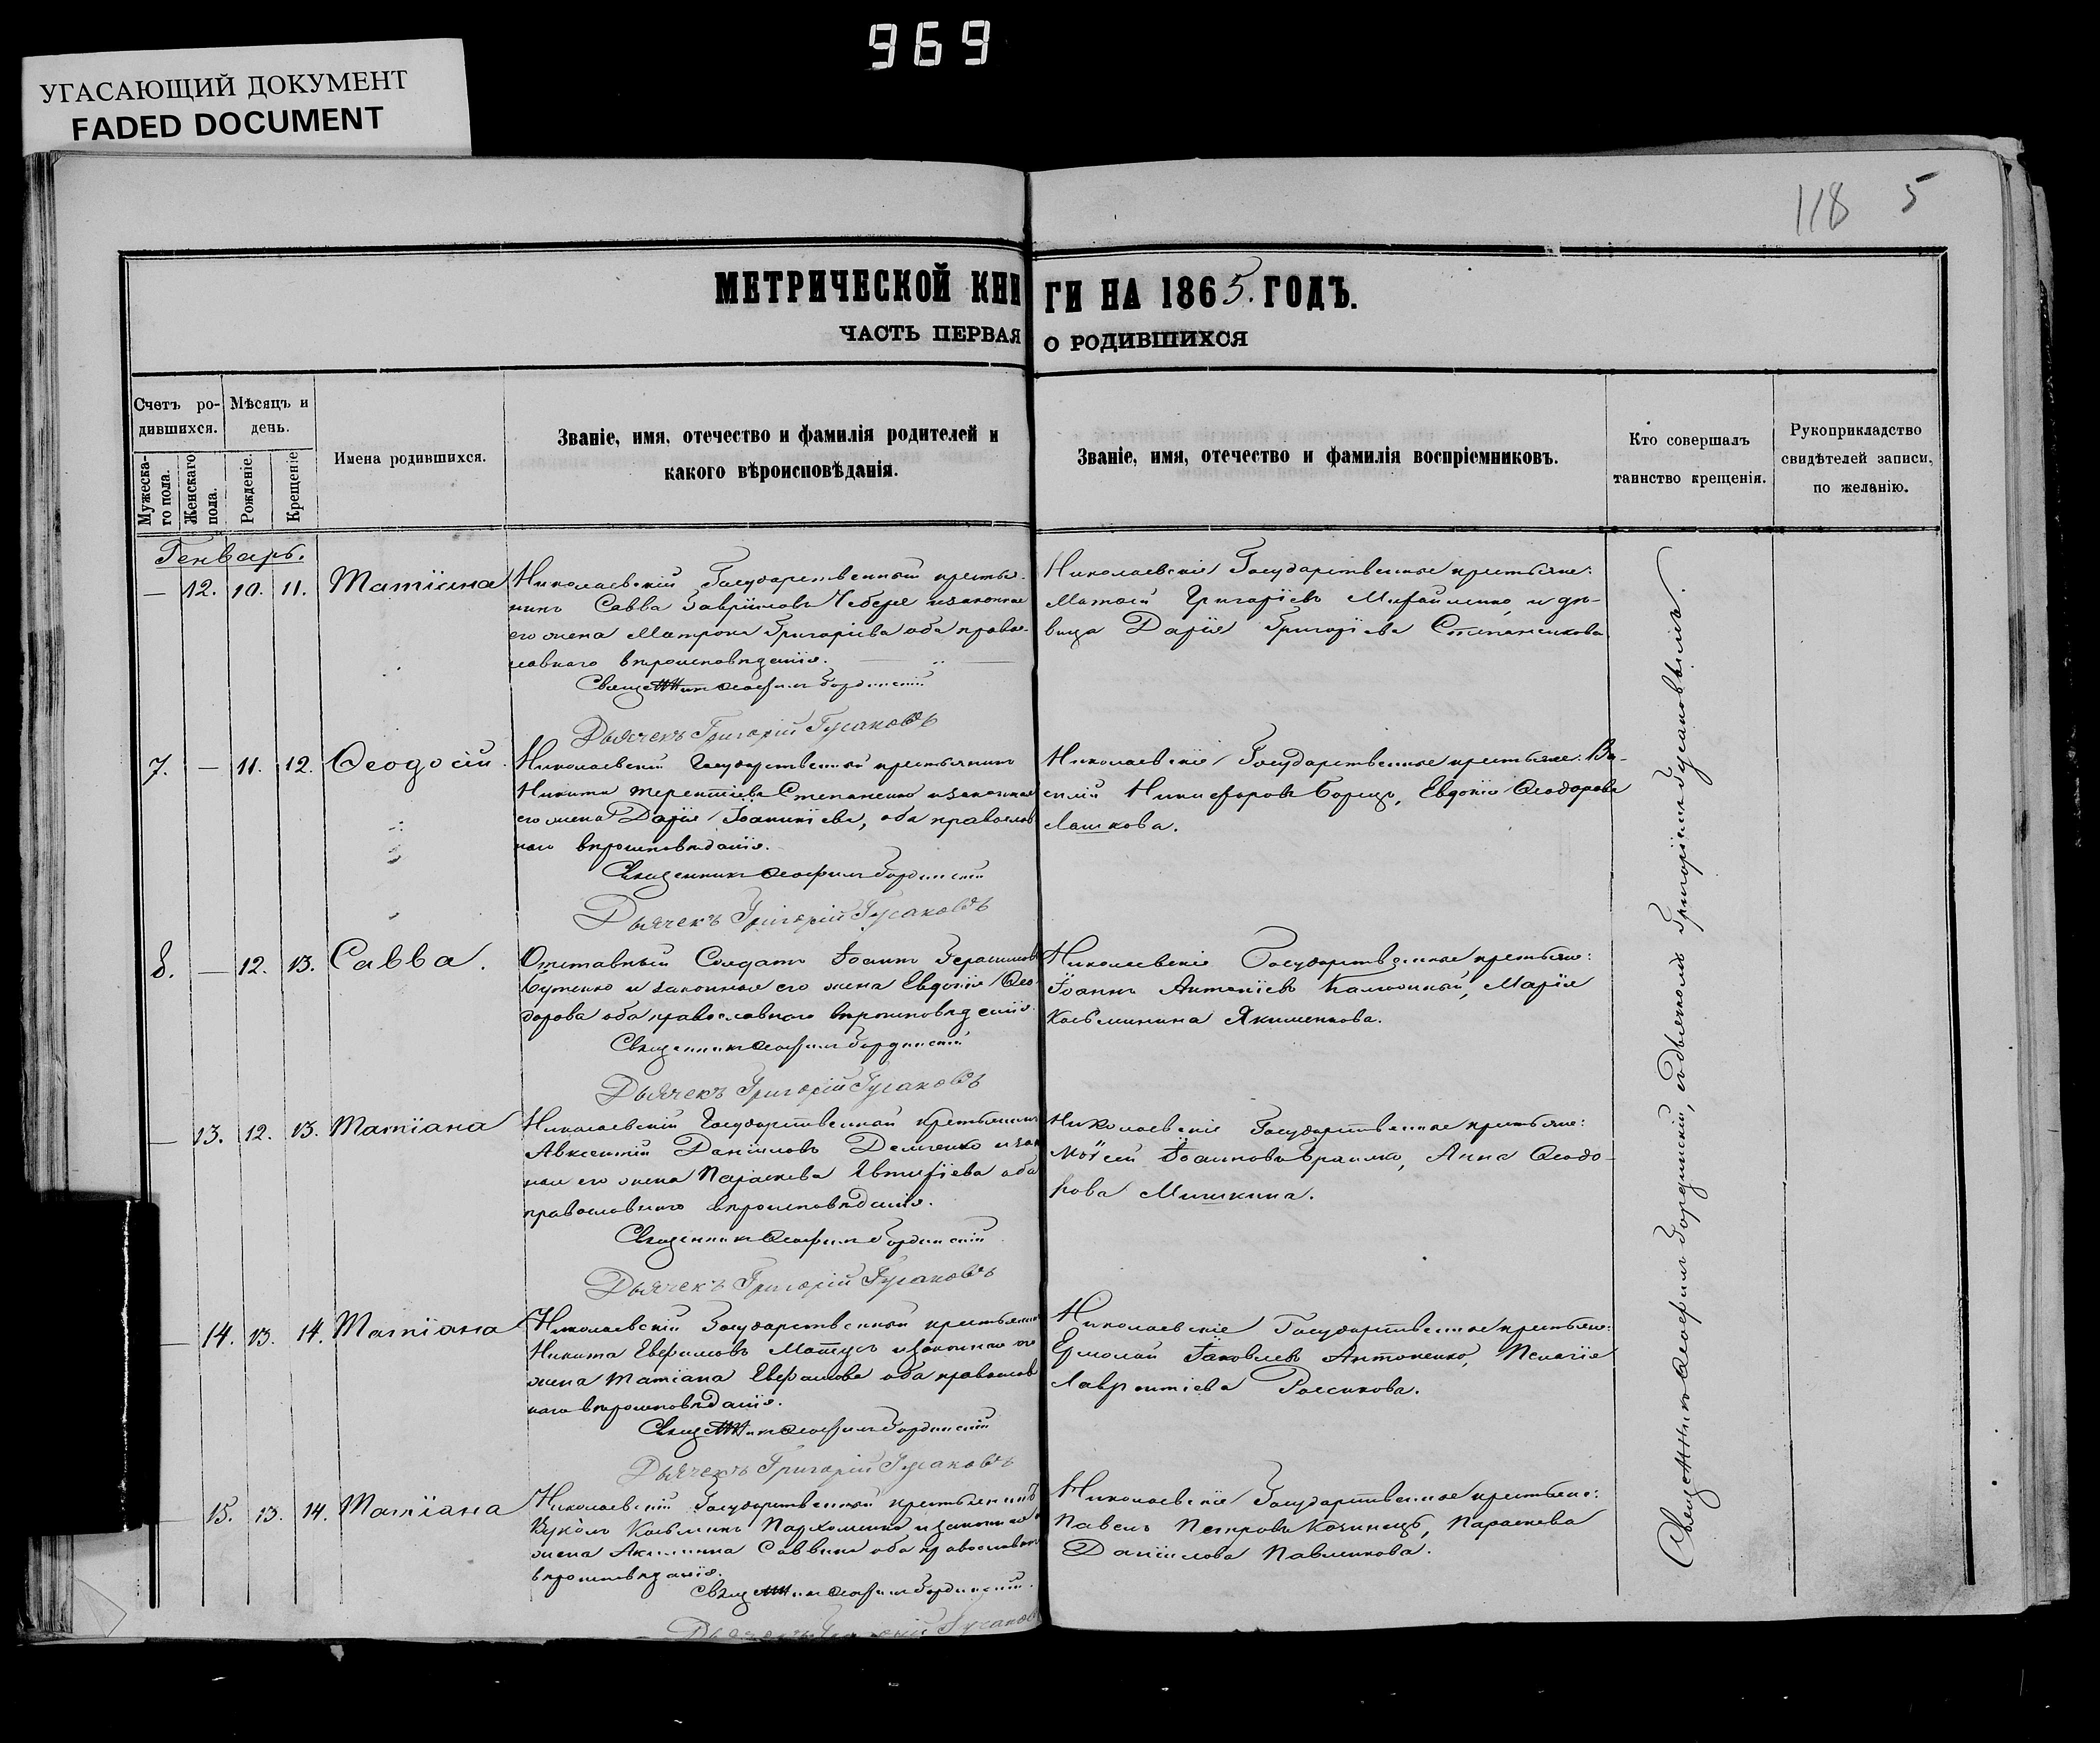 969
УГАСАЮЩИЙ ДОКУМЕНТ
FADED DOCUMENT
118 5
МЕТРИЧЕСКОЙ КНИГИ НА 1865. ГОДЪ.
ЧАСТЬ ПЕРВАЯ О РОДИВШИХСЯ
Счетъ ро-
дившихся.
Мужеска-
го пола.
Женскаго
пола.
Мѣсяцъ и
день.
Рожденіе.
Крещеніе
Имена родившихся.
Званіе, имя, отечество и фамилія родителей и
какого вѣроисповѣданія.
Званіе, имя, отечество и фамилія воспріемниковъ.
Кто совершалъ
таинство крещенія.
Рукоприкладство
свидѣтелей записи,
по желанію.
Генварь.
— 12. 10. 11. Татіана
Николаевскій Государственный крестья-
нинъ Савва Гавріиловъ и законная
его жена Матрона Григоріева оба право-
славнаго вѣроисповѣданія.
Священникъ Ѳеофилъ Бординскій
Дьячекъ Григорій Гусаковъ
Николаевскіе Государственные крестьяне:
Григоріевъ Михайленко, и дѣ-
вица Дарія Григоріева Степаненкова
7. — 11. 12. Ѳеодосій
Николаевскій Государственный крестьянинъ
Никита Терентіевъ Степаненко и законная
его жена Дарія Іоанникіева, оба православ
наго вѣроисповѣданія.
Священникъ Ѳеофилъ Бординскій
Дьячекъ Григорій Гусаковъ
Николаевскіе Государственные крестьяне: Ва-
силій Никифоровъ Борецъ, Евдокія Ѳеодорова
Лашкова.
8. — 12. 13. Савва.
Отставный Солдатъ Іоаннъ Герасимовъ
Бутенко и законная его жена Евдокія Ѳео-
дорова оба православнаго вѣроисповѣданія.
Священникъ Ѳеофилъ Бординскій
Дьячекъ Григорій Гусаковъ
Николаевскіе Государственные крестьяне:
Іоаннъ Антоніевъ Марія
Косьминина Якименкова.
— 13. 12. 13. Татіана
Николаевскій Государственный крестьянинъ
Авксентій Даніиловъ Демченко и зак
ная его жена Параскева Евтихіева оба
православнаго вѣроисповѣданія.
Священникъ Ѳеофилъ Бординскій
Дьячекъ Григорій Гусаковъ
Николаевскіе Государственные крестьяне:
Моѵсей Іоанновъ Анна Ѳеодо-
рова Мишкина.
— 14. 13. 14. Татіана
Николаевскій Государственный крестьянинъ
Никита Евфимовъ и законная его
жена Татіана оба православ
наго вѣроисповѣданія.
Священникъ Ѳеофилъ Бординскій
Дьячекъ Григорій Гусаковъ
Николаевскіе Государственные крестьяне:
Ермолай Іаковлевъ Антоненко, Пелагія
Лаврентіева
— 15. 13. 14. Татіана
Николаевскій Государственный крестьянинъ
Вуколъ Косьминъ Пархоменко и законная
жена Акилина Саввина оба православнаго
вѣроисповѣданія.
Священникъ Ѳеофилъ Бординскій.
Дьячекъ Григорій Гусаковъ
Николаевскіе Государственные крестьяне:
Павелъ Петровъ Параскева
Даніилова Павленкова.
Священникъ Ѳеофилъ Бординскій, съ дьячкомъ Григоріемъ Гусаковымъ.